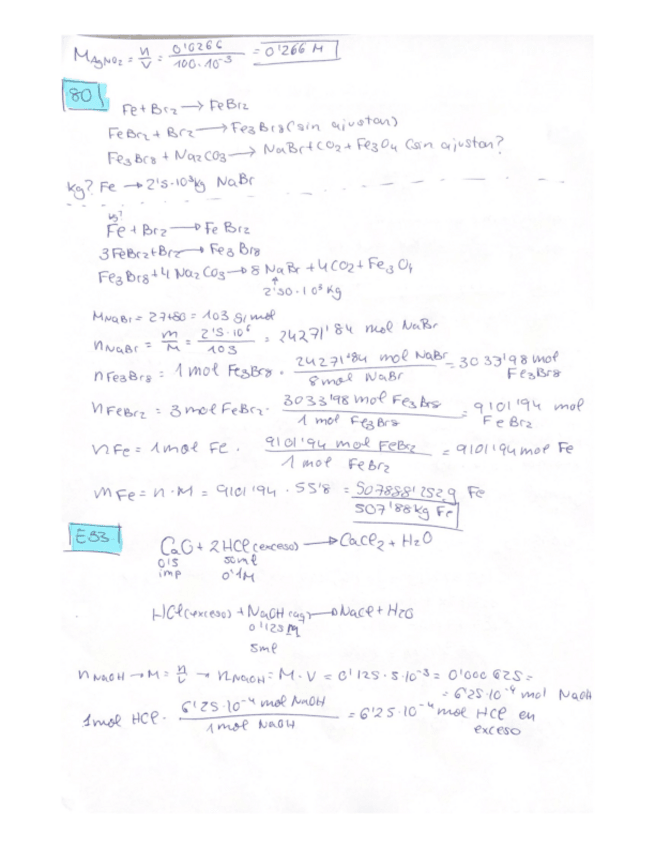 M AgNO2 = n/V = 0'0266/100·10⁻³ = 0'266 M
80)
Fe + Br2 → FeBr2
FeBr2 + Br2 → Fe3Br8 (sin ajustar)
Fe3Br8 + Na2CO3 → NaBr + CO2 + Fe3O4 (sin ajustar?
Kg? Fe → 2'5·10³kg NaBr
kg?
Fe + Br2 → Fe Br2
3FeBr2 + Br2 → Fe3 Br8
Fe3Br8 + 4 Na2 CO3 → 8 NaBr + 4CO2 + Fe3 O4
2'50·10³ Kg
M NaBr = 27+80 = 103 g/mol
n NaBr = m/M = 2'5·10⁶/103 = 24271'84 mol NaBr
n Fe3Br8 = 1 mol Fe3Br8 · 24271'84 mol NaBr/8 mol NaBr = 3033'98 mol Fe3Br8
n FeBr2 = 3 mol FeBr2 · 3033'98 mol Fe3Br8/1 mol Fe3Br8 = 9101'94 mol FeBr2
n Fe = 1 mol Fe · 9101'94 mol FeBr2/1 mol FeBr2 = 9101'94 mol Fe
m Fe = n · M = 9101'94 · 55'8 = 507888'252 g Fe
507'88 kg Fe
E53
CaO + 2HCl (exceso) → CaCl2 + H2O
0'15 50ml
imp 0'1M
HCl (exceso) + NaOH (aq) → NaCl + H2O
0'125 M
5ml
n NaOH → M = n/V → n NaOH = M · V = 0'125 · 5·10⁻³ = 0'000625 =
= 6'25·10⁻⁴ mol NaOH
1 mol HCl · 6'25·10⁻⁴ mol NaOH/1 mol NaOH = 6'25·10⁻⁴ mol HCl en
exceso